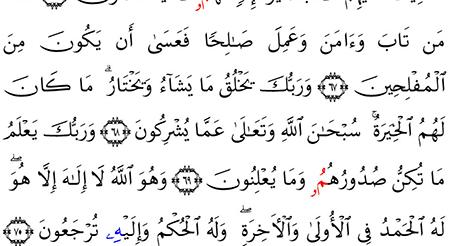 مَن تَابَ وَءَامَنَ وَعَمِلَ صَـٰلِحًا فَعَسَىٰ أَن يَكُونَ مِنَ
ٱلْمُفْلِحِينَ ﴿٦٧﴾ وَرَبُّكَ يَخْلُقُ مَا يَشَآءُ وَيَخْتَارُ ۗ مَا كَانَ
لَهُمُ ٱلْخِيَرَةُ ۚ سُبْحَـٰنَ ٱللَّهِ وَتَعَـٰلَىٰ عَمَّا يُشْرِكُونَ ﴿٦٨﴾ وَرَبُّكَ يَعْلَمُ
مَا تُكِنُّ صُدُورُهُمُۥ وَمَا يُعْلِنُونَ ﴿٦٩﴾ وَهُوَ ٱللَّهُ لَآ إِلَـٰهَ إِلَّا هُوَ ۖ
لَهُ ٱلْحَمْدُ فِى ٱلْأُولَىٰ وَٱلْأَخِرَةِ ۖ وَلَهُ ٱلْحُكْمُ وَإِلَيْهِۦ تُرْجَعُونَ ﴿٧٠﴾